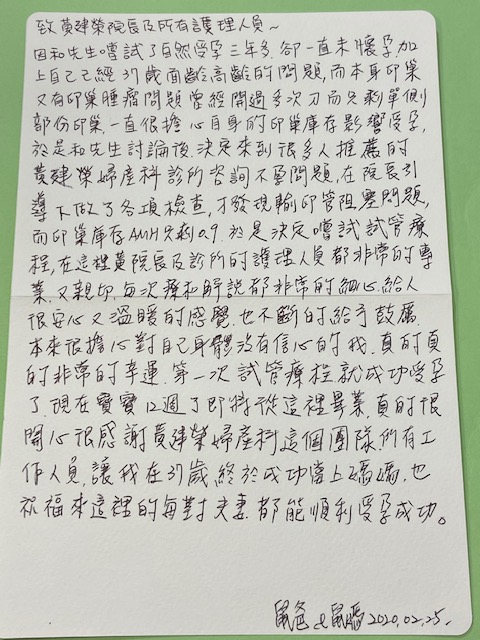 致黃建榮院長及所有護理人員～
因和先生嚐試了自然受孕三年多,卻一直未懷孕,加
上自己已經37歲面齡高齡的問題,而本身卵巢
又有卵巢腫瘤問題曾經開過多次刀而只剩單側
部份卵巢,一直很擔心自身的卵巢庫存影響受孕,
於是和先生討論後,決定來到很多人推薦的
黃建榮婦產科診所咨詢不孕問題,在院長引
導下做了各項檢查,才發現輸卵管阻塞問題,
而卵巢庫存AMH只剩0.9.於是決定嚐試試管療
程,在這裡黃院長及診所的護理人員都非常的專
業,又親切,每次療和解說都非常的細心給人
很安心又溫暖的感覺.也不斷的給予鼓厲.
本來很擔心對自己身體沒有信心的我,真的真
的非常的幸運.第一次試管療程就成功受孕
了.現在寶寶12週了即將從這裡畢業,真的很
開心很感謝黃建榮婦產科這個團隊所有工
作人員,讓我在37歲,終於成功當上媽媽,也
祈福來這裡的每對夫妻,都能順利受孕成功。
鼠爸&鼠媽 2020.02.25.